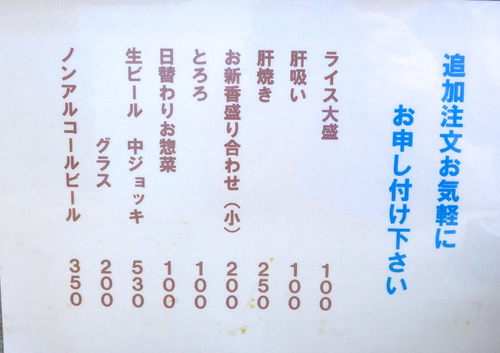 追加注文お気軽に
お申し付け下さい
ライス大盛 100
肝吸い 100
肝焼き 250
お新香盛り合わせ（小） 200
とろろ 100
日替わりお惣菜 100
生ビール 中ジョッキ 530
グラス 200
ノンアルコールビール 350